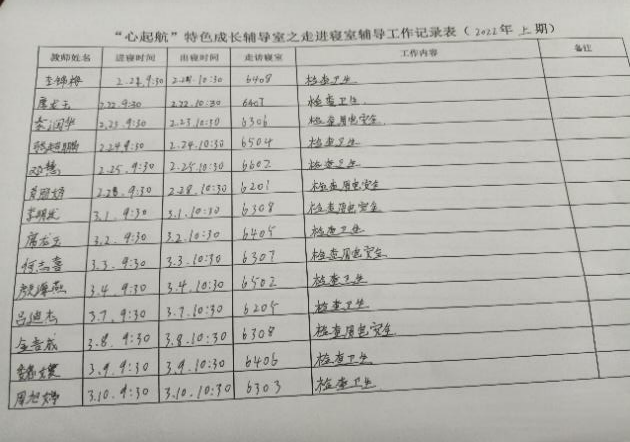 “心起航”特色成长辅导室之走进寝室辅导工作记录表（2022年上期）
教师姓名 进寝时间 出寝时间 走访寝室 工作内容 备注
2.21.9:30 2.21.10:30 6408 检查卫生
席龙玉 2.22.9:30 2.22.10:30 6407 检查卫生
2.23.9:30 2.23.10:30 6306 检查用电安全
2.24.9:30 2.24.10:30 6504 检查卫生
邓慧 2.25.9:30 2.25.10:30 6602 检查卫生
2.28.9:30 2.28.10:30 6201 检查用电安全
3.1.9:30 3.1.10:30 6308 检查用电安全
席龙玉 3.2.9:30 3.2.10:30 6405 检查卫生
何志喜 3.3.9:30 3.3.10:30 6307 检查用电安全
3.4.9:30 3.4.10:30 6502 检查卫生
吕迪杰 3.7.9:30 3.7.10:30 6205 检查卫生
3.8.9:30 3.8.10:30 6308 检查用电安全
3.9.9:30 3.9.10:30 6406 检查卫生
3.10.9:30 3.10.10:30 6303 检查卫生